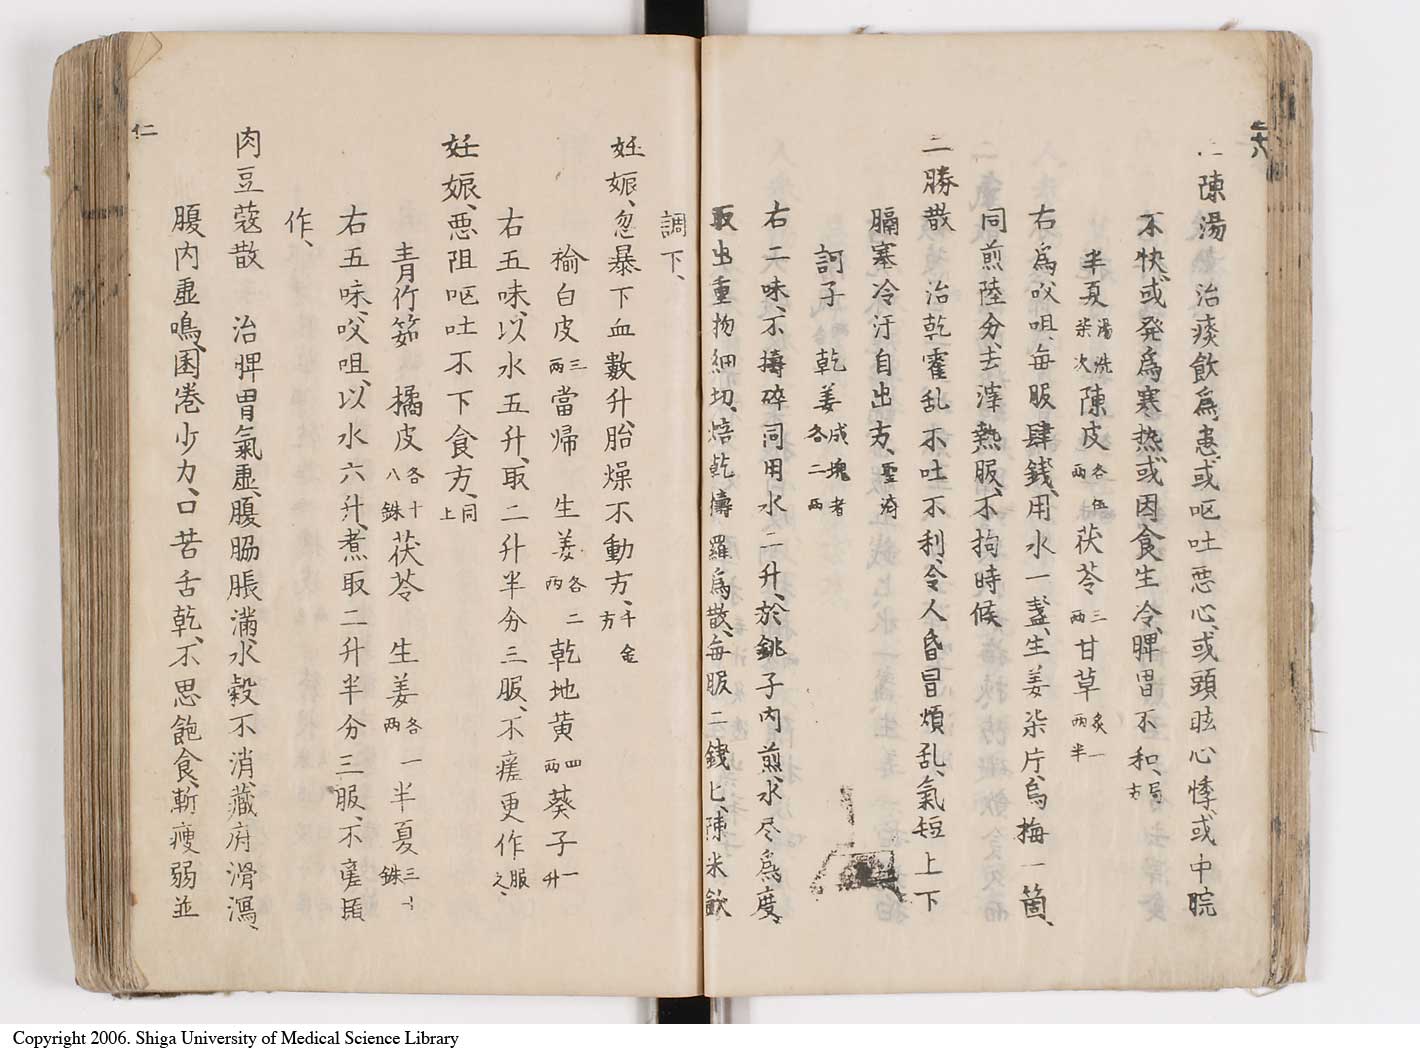 二陳湯 治痰飲爲患、或呕吐恶心、或頭眩心悸、或中脘
不快、或発爲寒热、或因食生冷、脾胃不和、局方
半夏湯洗柒次 陳皮各伍兩 茯苓三兩 甘草炙一兩半
右爲㕮咀、每服肆錢、用水一盞、生姜柒片、烏梅一箇、
同煎陸分、去滓熱服、不拘時候
二勝散 治乾霍乱不吐不利、令人昏冒煩乱、氣短上下
膈塞冷汗自出方、聖済
訶子 乾姜成塊者各二兩
右二味、不擣碎同用水二升、於銚子内煎、水尽爲度、
取出重物細切、焙乾擣羅爲散、每服二錢匕、陳米飲
調下、
妊娠、忽暴下血數升、胎燥不動方、千金方
榆白皮三兩 當帰 生姜各二兩 乾地黄四兩 葵子一升
右五味、以水五升、取二升半分三服、不瘥更作服之、
妊娠、悪阻呕吐不下食方、同上
青竹茹 橘皮各十八銖 茯苓 生姜各一兩 半夏三十銖
右五味、㕮咀、以水六升、煮取二升半分三服、不瘥頻
作、
肉豆蔻散 治脾胃氣虚、腹脇脹満、水穀不消、藏府滑瀉、
腹内虚鳴、困倦少力、口苦舌乾、不思飽食、斬瘦弱並
仁